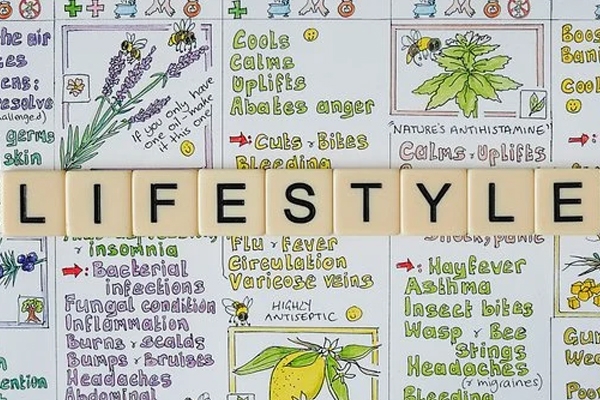 the air
ens:
resolve
germs
skin
If you only have
one oil - make
it this one!
Cools
Calms
Uplifts
Abates anger
: Cuts & Bites
Bleeding
"NATURE'S ANTIHISTAMINE"
Calms & Uplifts
LIFESTYLE
& insomnia
: Bacterial
infections
Fungal condition
Inflammation
Burns & scalds
Bumps & Bruises
Headaches
Abdominal
Flu & Fever
Circulation
Varicose veins
HIGHLY
ANTISEPTIC
: Hayfever
Asthma
Insect bites
Wasp & Bee
Stings
Headaches
(& migraines)
Bleeding